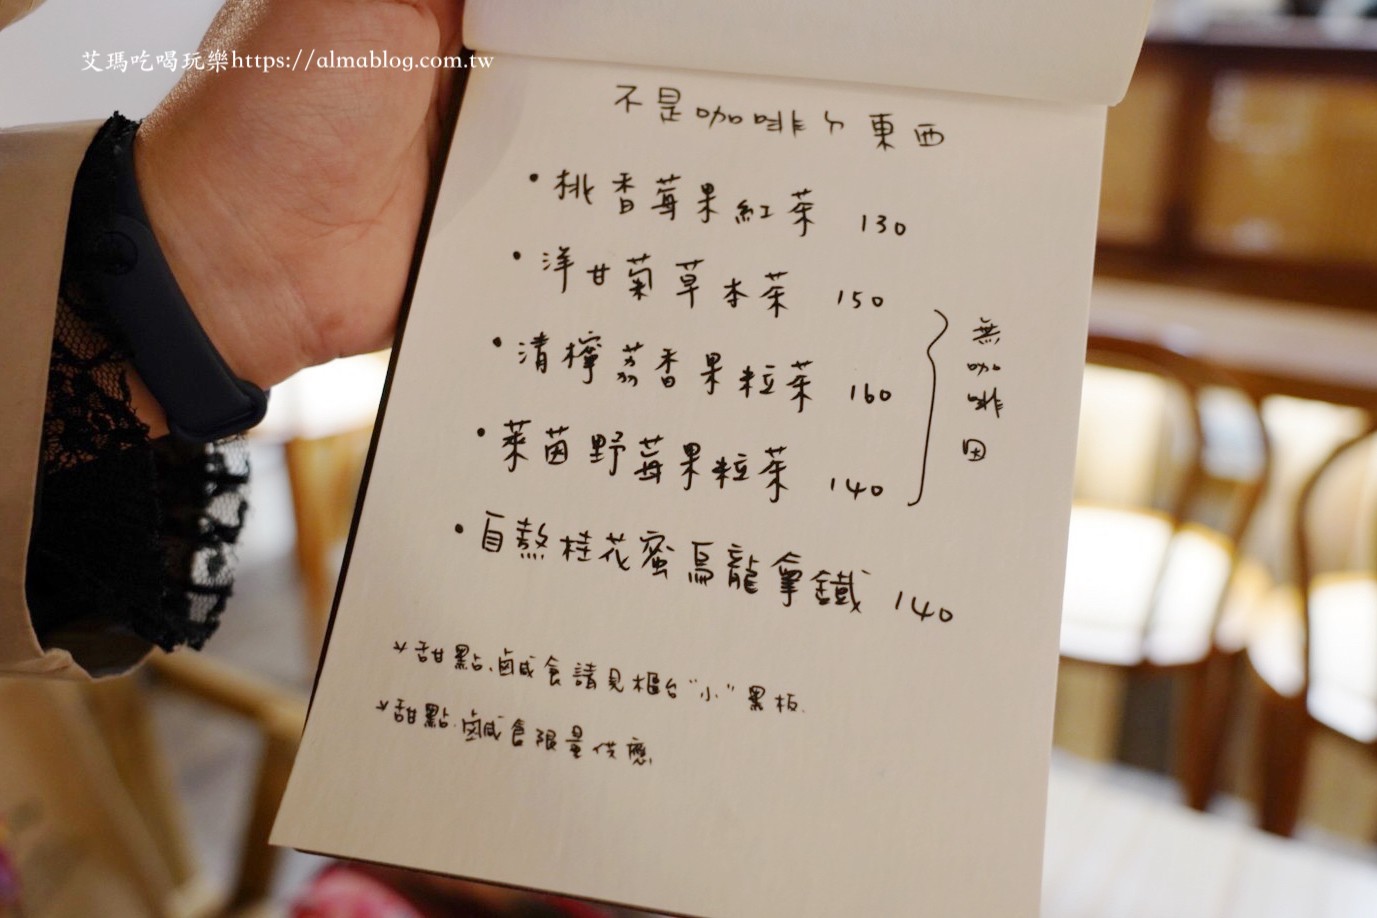 艾瑪吃喝玩樂https://almablog.com.tw
不是咖啡ㄉ東西
• 桃香莓果紅茶 130
• 洋甘菊草本茶 150
• 清檸荔香果粒茶 160
• 萊茵野莓果粒茶 140
無咖啡因
• 自熬桂花蜜烏龍拿鐵 140
* 甜點、鹹食請見櫃台“小”黑板.
* 甜點、鹹食限量供應